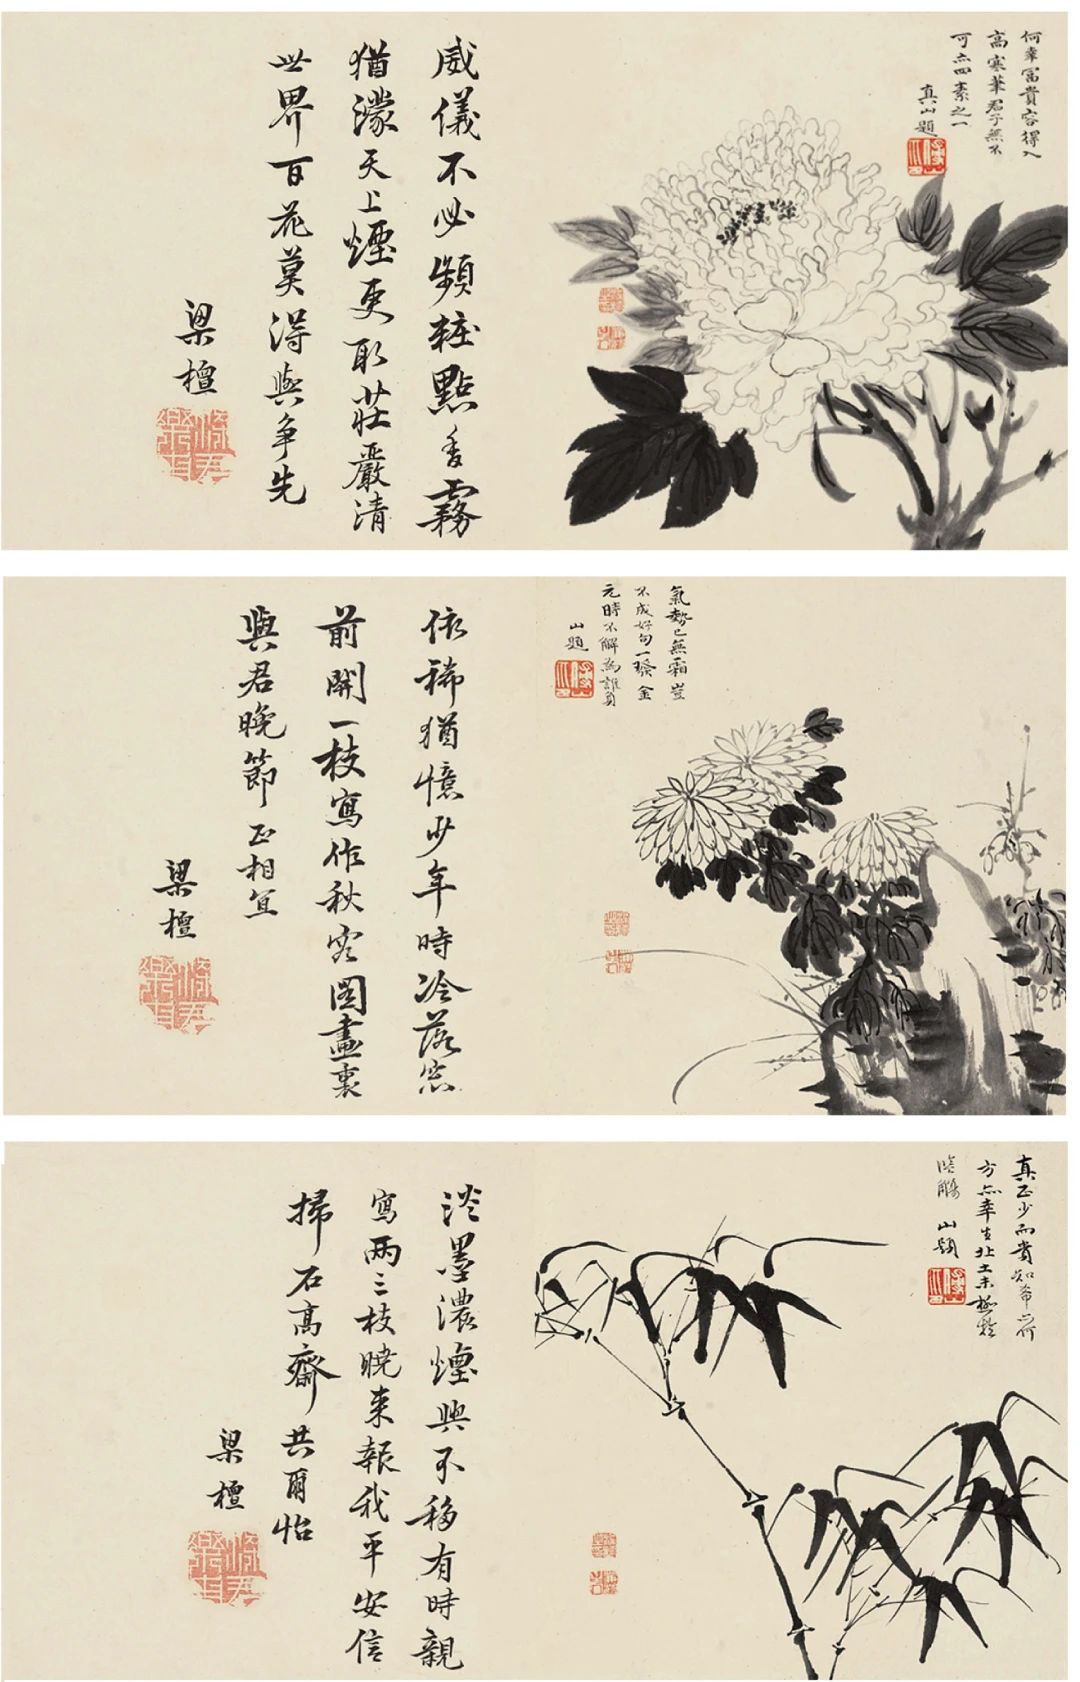 何幸富貴容得入
高寒筆君子無不
可亦四素之一
真山題
傅山印
威儀不必頻粧點香霧
猶濛天上煙更取莊嚴清
世界百花莫得與爭先
梁檀
氣勢已無霜豈
不成好句一金
元時不解為誰
山題
傅山印
依稀猶憶少年時冷落窓
前開一枝寫作秋容圖畫裏
與君晚節正相宜
梁檀
真正少而貴知希
方亦幸生北土未
山題
傅山印
淡墨濃煙興不移有時親
寫兩三枝曉來報我平安信
掃石高齋共爾怡
梁檀